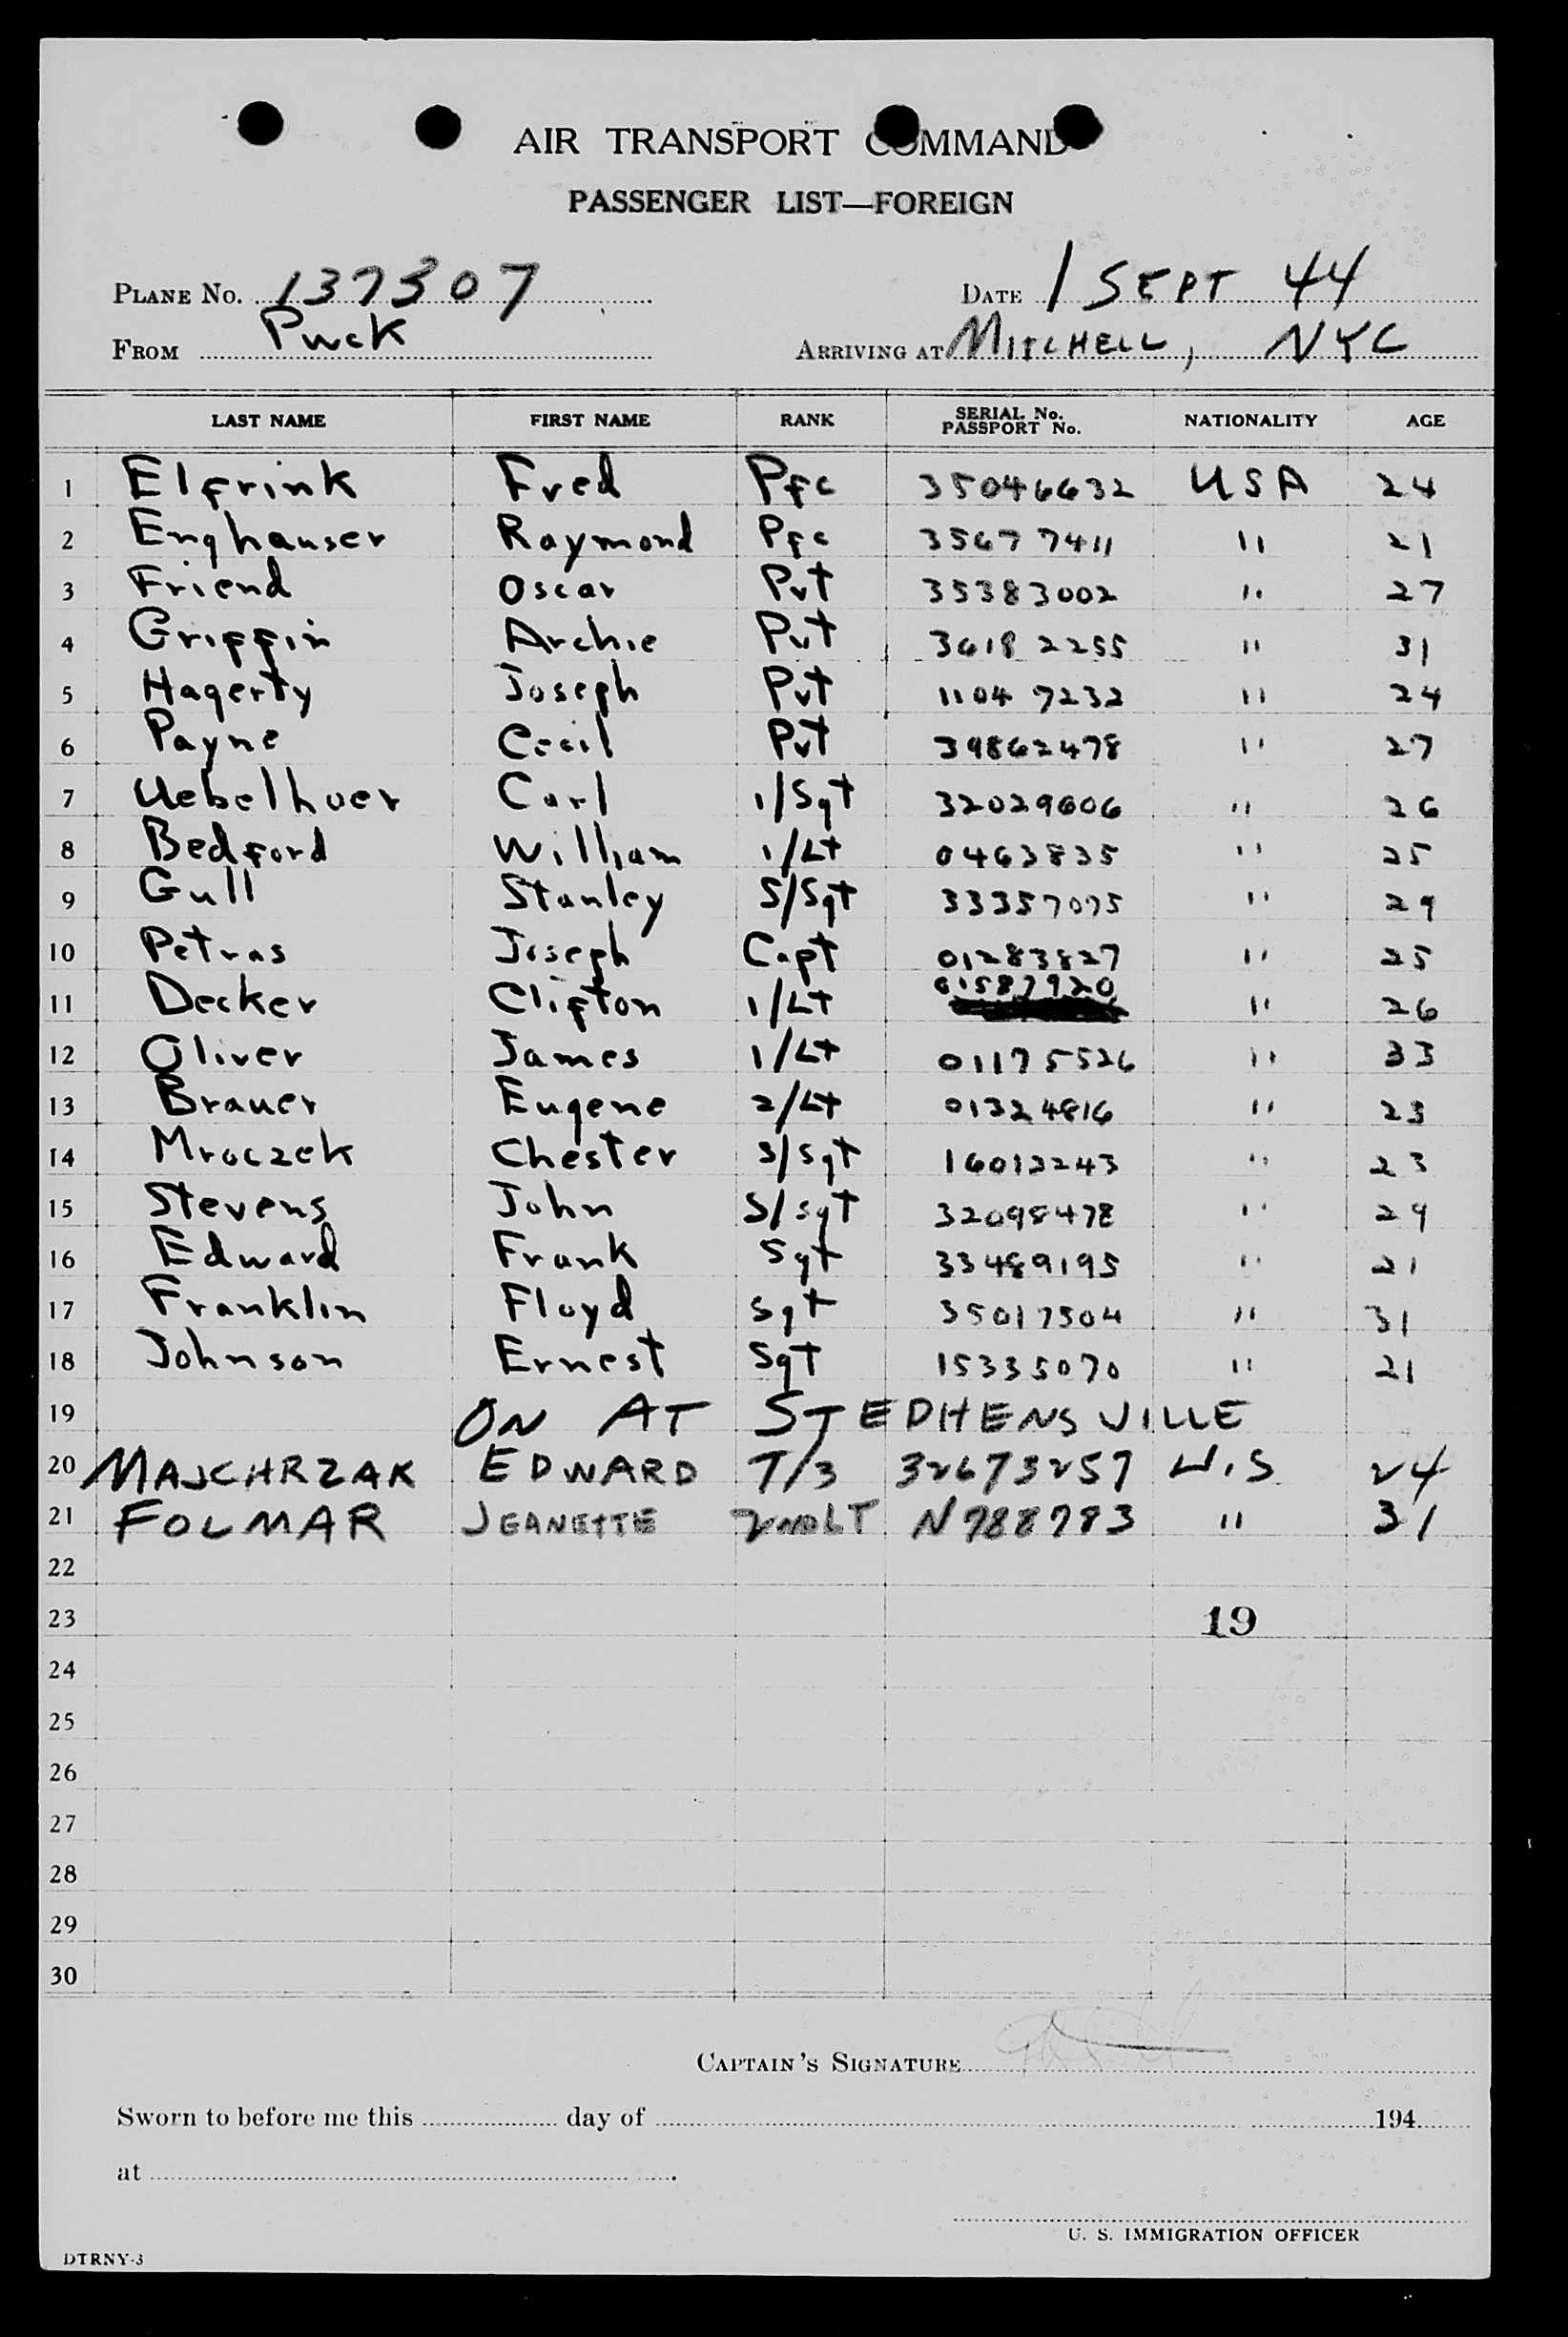 AIR TRANSPORT COMMAND
PASSENGER LIST—FOREIGN
PLANE No. 137307 DATE 1 SEPT 44
FROM Puck ARRIVING AT MITCHELL, NYC
LAST NAME FIRST NAME RANK SERIAL No. PASSPORT No. NATIONALITY AGE
1 Elfrink Fred Pfc 35046632 USA 24
2 Enghauser Raymond Pfc 35677411 " 21
3 Friend Oscar Pvt 35383002 " 27
4 Griffin Archie Pvt 3618 2255 " 31
5 Hagerty Joseph Pvt 1104 7232 " 24
6 Payne Cecil Pvt 39862478 " 27
7 Uebelhoer Carl 1/Sgt 32029606 " 26
8 Bedford William 1/Lt 0463835 " 25
9 Gull Stanley S/Sgt 33357075 " 29
10 Petras Joseph Capt 01283827 " 25
11 Decker Clifton 1/Lt 01587920 " 26
12 Oliver James 1/Lt 01175526 " 33
13 Brauer Eugene 2/Lt 01324816 " 23
14 Mroczek Chester S/Sgt 16012243 " 23
15 Stevens John S/Sgt 32098478 " 29
16 Edward Frank Sgt 33489195 " 21
17 Franklin Floyd Sgt 35017504 " 31
18 Johnson Ernest Sgt 15335070 " 21
19 ON AT STEPHENSVILLE
20 MAJCHRZAK EDWARD T/3 32673257 U.S 24
21 FOLMAR JEANETTE 2ND LT N788783 " 31
22
23 19
24
25
26
27
28
29
30
CAPTAIN'S SIGNATURE
Sworn to before me this day of 194
at .
U. S. IMMIGRATION OFFICER
DTRNY-3